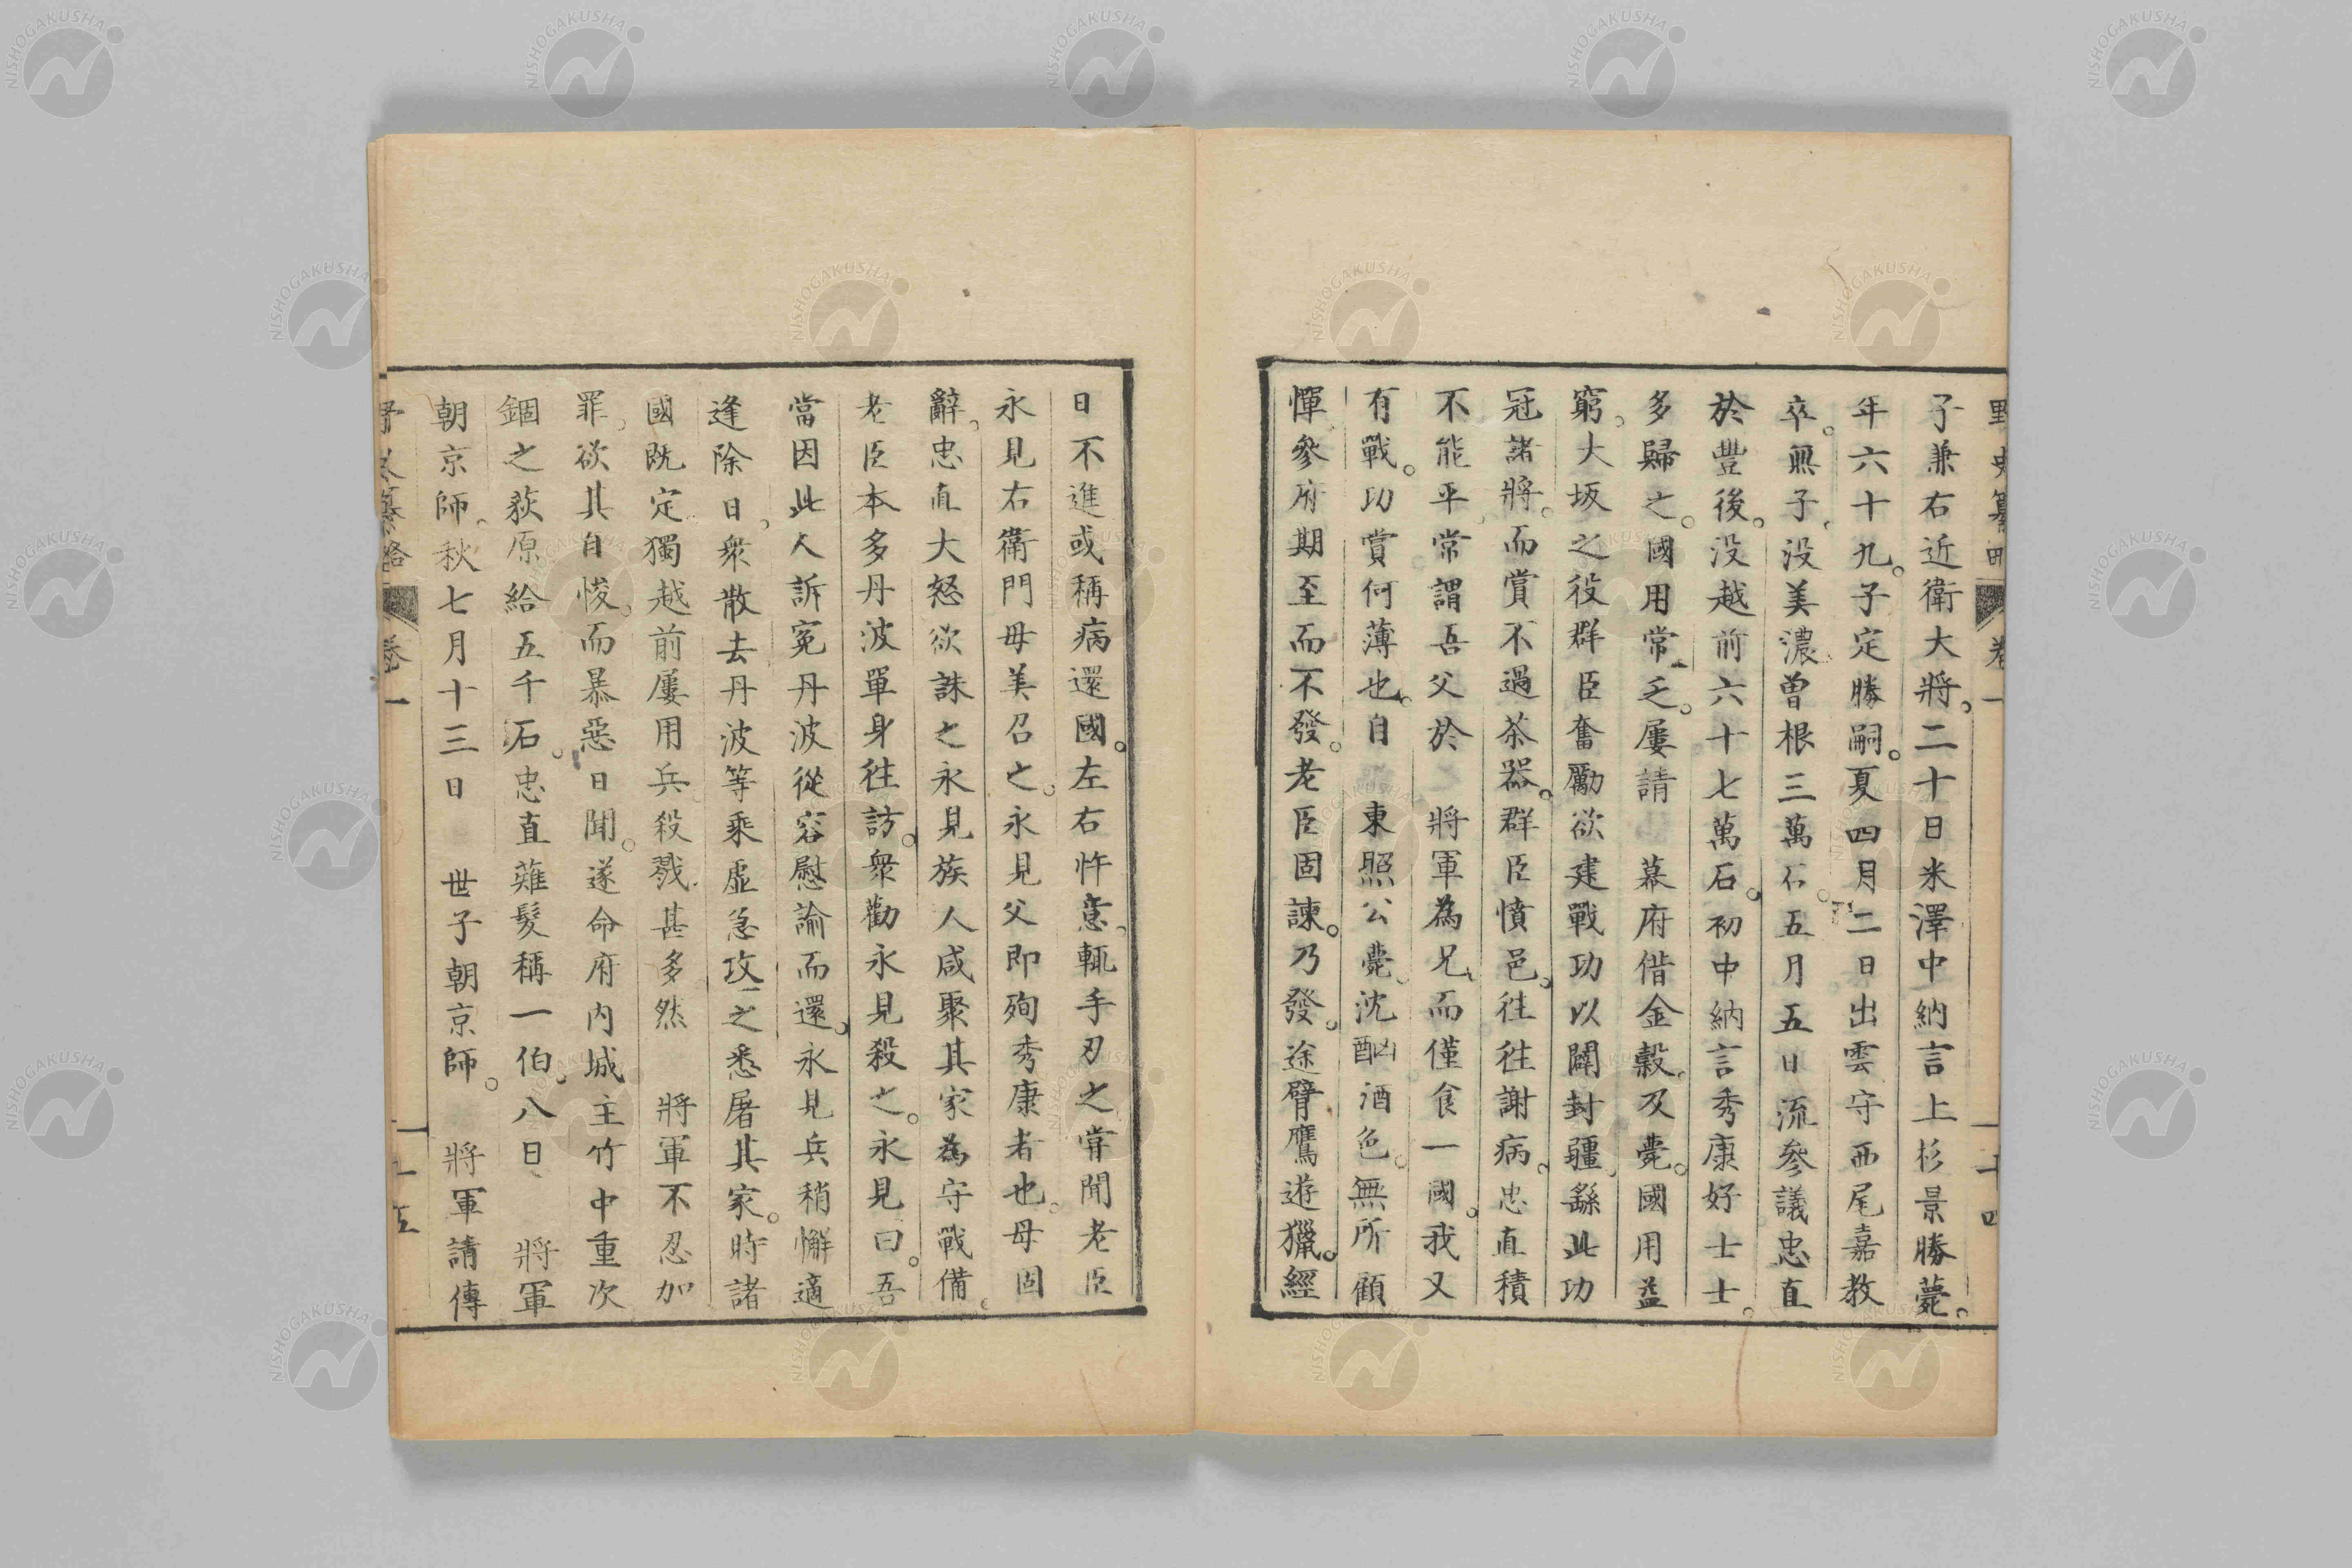 子兼右近衛大將。二十日米澤中納言上杉景勝薨。
年六十九。子定勝嗣。夏四月二日出雲守西尾嘉教
卒。無子。沒美濃曽根三萬石。五月五日流參議忠直
於豐後。没越前六十七萬石。初中納言秀康好士士。
多歸之。國用常乏。屢請 幕府借金穀。及薨。國用益
窮。大坂之役群臣奮勵欲建戰功以闢封疆。繇此功
冠諸將。而賞不過茶器。群臣憤邑。往往謝病。忠直積
不能平。常謂吾父於 將軍為兄。而僅食一國。我又
有戰。功賞何薄也。自 東照公薨。沈酗酒色。無所顧
憚。參府期至而不發。老臣固諫。乃發。途臂鷹遊獵。經
日不進或稱病還國。左右忤意。輒手刃之甞聞老臣
永見右衛門母美召之。永見父即殉秀康者也。母固
辭。忠直大怒欲誅之永見族人咸聚其家為守戰備。
老臣本多丹波單身往訪。衆勸永見殺之。永見曰。吾
當因此人訴寃丹波從容慰諭而還。永見兵稍懈適
逢除日。衆散去丹波等乘虛急攻之悉屠其家。時諸
國既定獨越前屢用兵殺戮甚多然 將軍不忍加
罪。欲其自悛。而暴惡日聞。遂命府内城主竹中重次
錮之萩原給五千石。忠直薙髮稱一伯。八日 將軍
朝京師。秋七月十三日 世子朝京師。 將軍請傳
野史纂略 卷一 十五